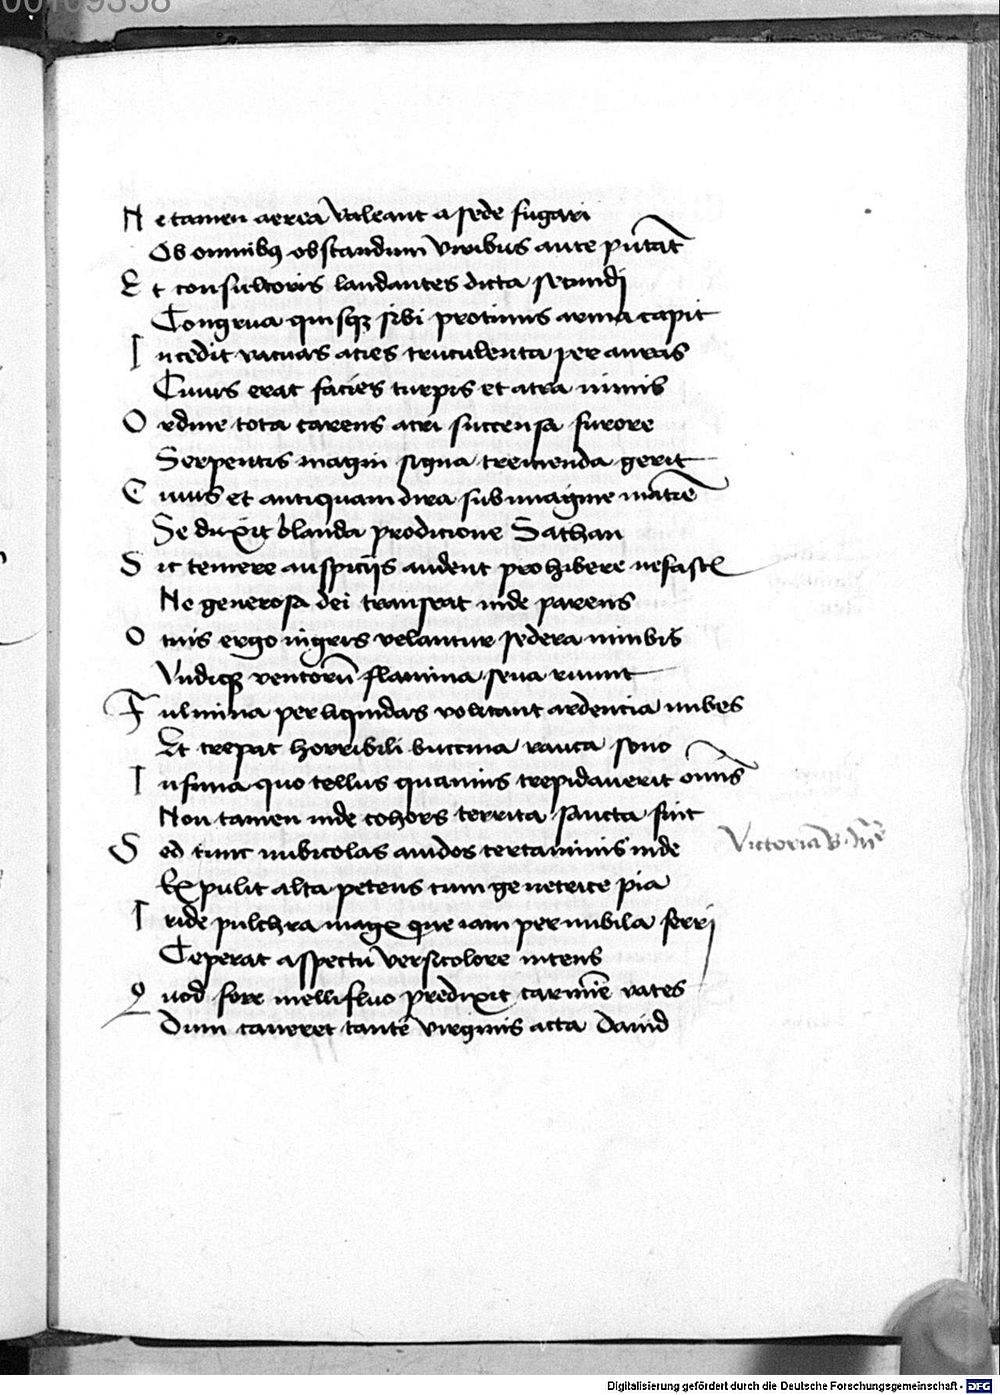 00109338
Ne tamen aereā valeant a sede fugari
Ob omnibꝰ obstandum viribus ante putāt
Et consultoris laudantes dicta secundi
Congrua quisqꝫ sibi protinus arma capit
Incedit vacuas acies truculenta per auras
Cuius erat facies turpis et atra nimis
Ordine tota carens acri succensa furore
Serpentis magni signa tremenda gerit
Cuius et antiquam dira sub imagine matrē
Seduxit blanda prodicione Sathan
Sic temere auspiciis audent prohibere nefastꝭ
Ne generosa dei transeat inde parens
Otius ergo nigris velantur sedera nimbis
Vndiqꝫ ventorū flamina seua ruunt
Fulmina per liquidas volitant ardencia nubes
Et crepat horribili buccina rauca sono
Infima quo tellus quamuis trepidauerit om̄is
Non tamen inde cohors territa sancta fuit
Sed tunc nubicolas auidos certaminis inde
Victoria
Expulit alta petens cum genetrice pia
Iride pulchra magꝭ que iam per nubila ferri
Ceperat aspectū versicolore nitens
Quod fore mellifluo predixit carmīe vates
Dum caneret tantē virginis acta Dauid
Digitalisierung gefördert durch die Deutsche Forschungsgemeinschaft - DFG